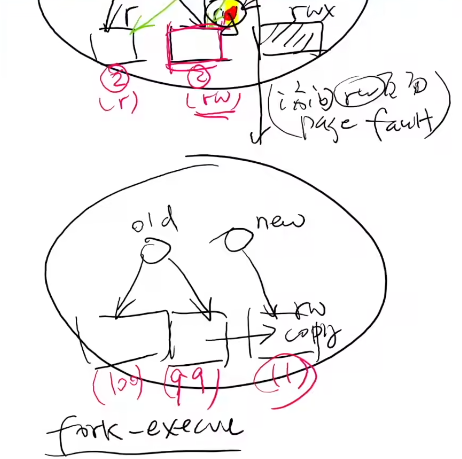 r
rwx
②
②
(r)
(rw)
rw
page fault)
old
new
rw
copy
(100)
(99)
(1)
fork-execve